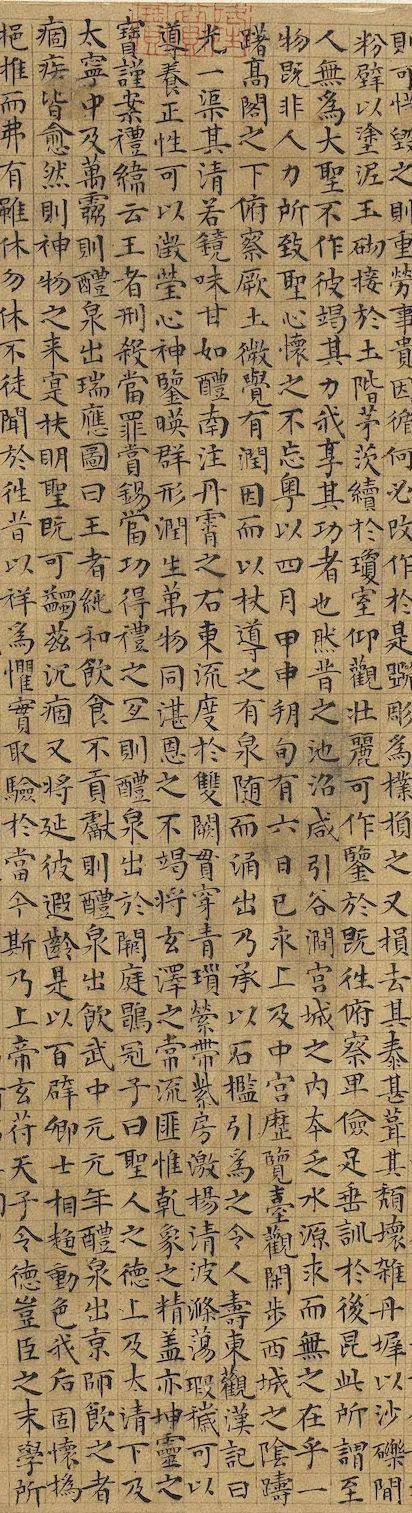 則可惜毀之則重勞事貴因循何必改作於是斲彫為樸損之又損去其泰甚葺其頹壞雜丹墀以沙礫間
粉壁以塗泥玉砌接於土階茅茨續於瓊室仰觀壯麗可作鑒於既往俯察卑儉足垂訓於後昆此所謂至
人無為大聖不作彼竭其力我享其功者也然昔之池沼咸引谷澗宮城之內本乏水源求而無之在乎一
物既非人力所致聖心懷之不忘粵以四月甲申朔旬有六日已亥上及中宮歷覽臺觀閑步西城之陰躊
躇高閣之下俯察厥土微覺有潤因而以杖導之有泉隨而涌出乃承以石檻引為之令人壽東觀漢記曰
光一渠其清若鏡味甘如醴南注丹霄之右東流度於雙闕貫穿青瑣縈帶紫房激楊清波滌蕩瑕穢可以
導養正性可以澂瑩心神鑒暎群形潤生萬物同湛恩之不竭將玄澤之常流匪惟乾象之精蓋亦坤靈之
寶謹案禮緯云王者刑殺當罪賞錫當功得禮之宜則醴泉出於闕庭鶡冠子曰聖人之德上及太清下及
太寧中及萬靈則醴泉出瑞應圖曰王者純和飲食不貢獻則醴泉出飲武中元元年醴泉出京師飲之者
痼疾皆愈然則神物之来寔扶明聖既可蠲茲沉痼又將延彼遐齡是以百辟卿士相趍動色我后固懷撝
挹推而弗有雖休勿休不徒聞於往昔以祥為懼實取驗於當今斯乃上帝玄符天子令德豈臣之末學所